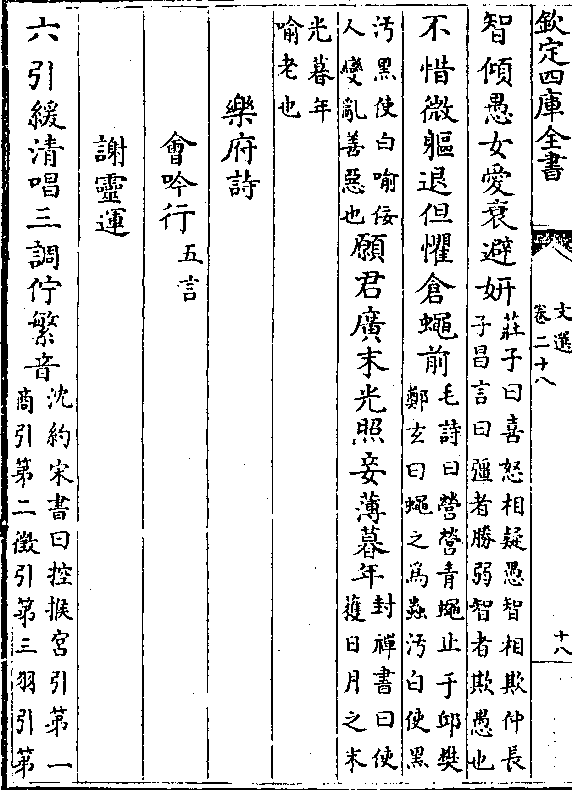 欽定四庫全書
文選
卷二十八
十八
智傾愚女愛衰避妍莊子曰喜怒相疑愚智相欺仲長
子昌言曰彊者勝弱智者欺愚也
不惜微軀退但懼倉蠅前毛詩曰營營青蠅止于邱樊
鄭玄曰蠅之為蟲汚白使黑
汚黑使白喻佞
人變亂善惡也願君廣末光照妾薄暮年封禪書曰使
獲日月之末
光暮年
喻老也
樂府詩
會吟行五言
謝靈運
六引緩清唱三調佇繁音沈約宋書曰控㨋宮引第一
商引第二徵引第三羽引第